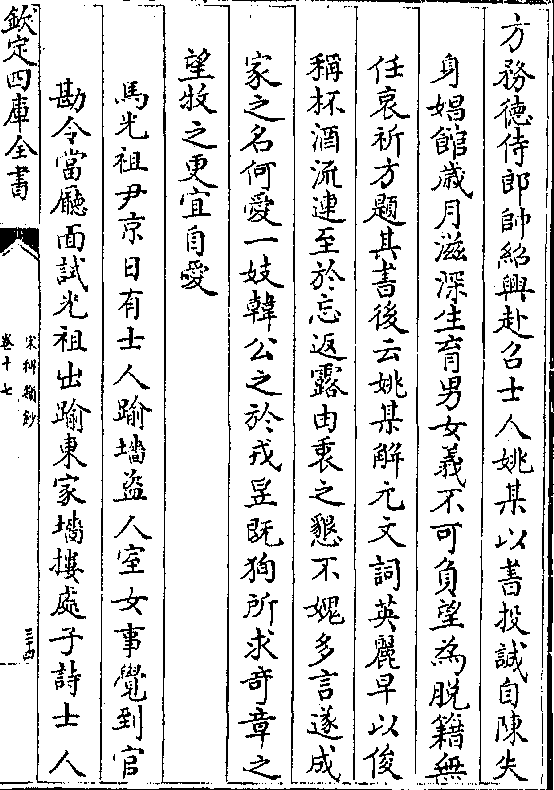 方務徳侍郎帥紹興赴召士人姚某以書投誠自陳失
身娼館歳月滋深生育男女義不可負望為脱籍無
任哀祈方題其書後云姚某解元文詞英麗早以俊
稱杯酒流連至於忘返露由衷之懇不媿多言遂成
家之名何愛一妓韓公之於戎昱既狥所求奇章之
望牧之更宜自愛
馬光祖尹京日有士人踰墻盗人室女事覺到官
勘令當廳面試光祖出踰東家墻摟處子詩士人
欽定四庫全書
宋稗類鈔
卷十七
三十四